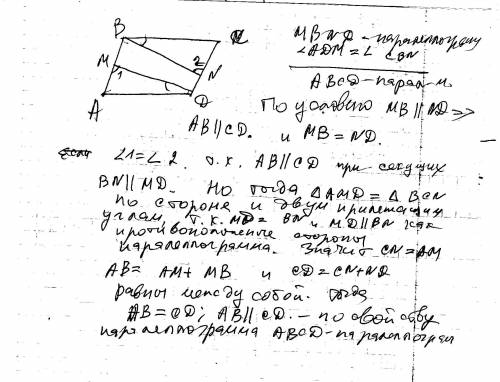 B C
M 1 2 N
A D
MBND - параллелограмм
∠ADM = ∠CBN
ABCD - парал-м.
По условию MB ∥ ND =>
AB ∥ CD. и MB = ND.
∠1 = ∠2. т.к. AB ∥ CD при секущих
BN ∥ MD. Но тогда △AMD = △BCN
по стороне и двум прилежащим
углам, т.к. MD = BN и MD ∥ BN как
противоположные стороны
параллелограмма. Значит CN = AM
AB = AM + MB и CD = CN + ND
равны между собой. Тогда
AB = CD; AB ∥ CD. - по свойству
параллелограмма ABCD - параллелограм